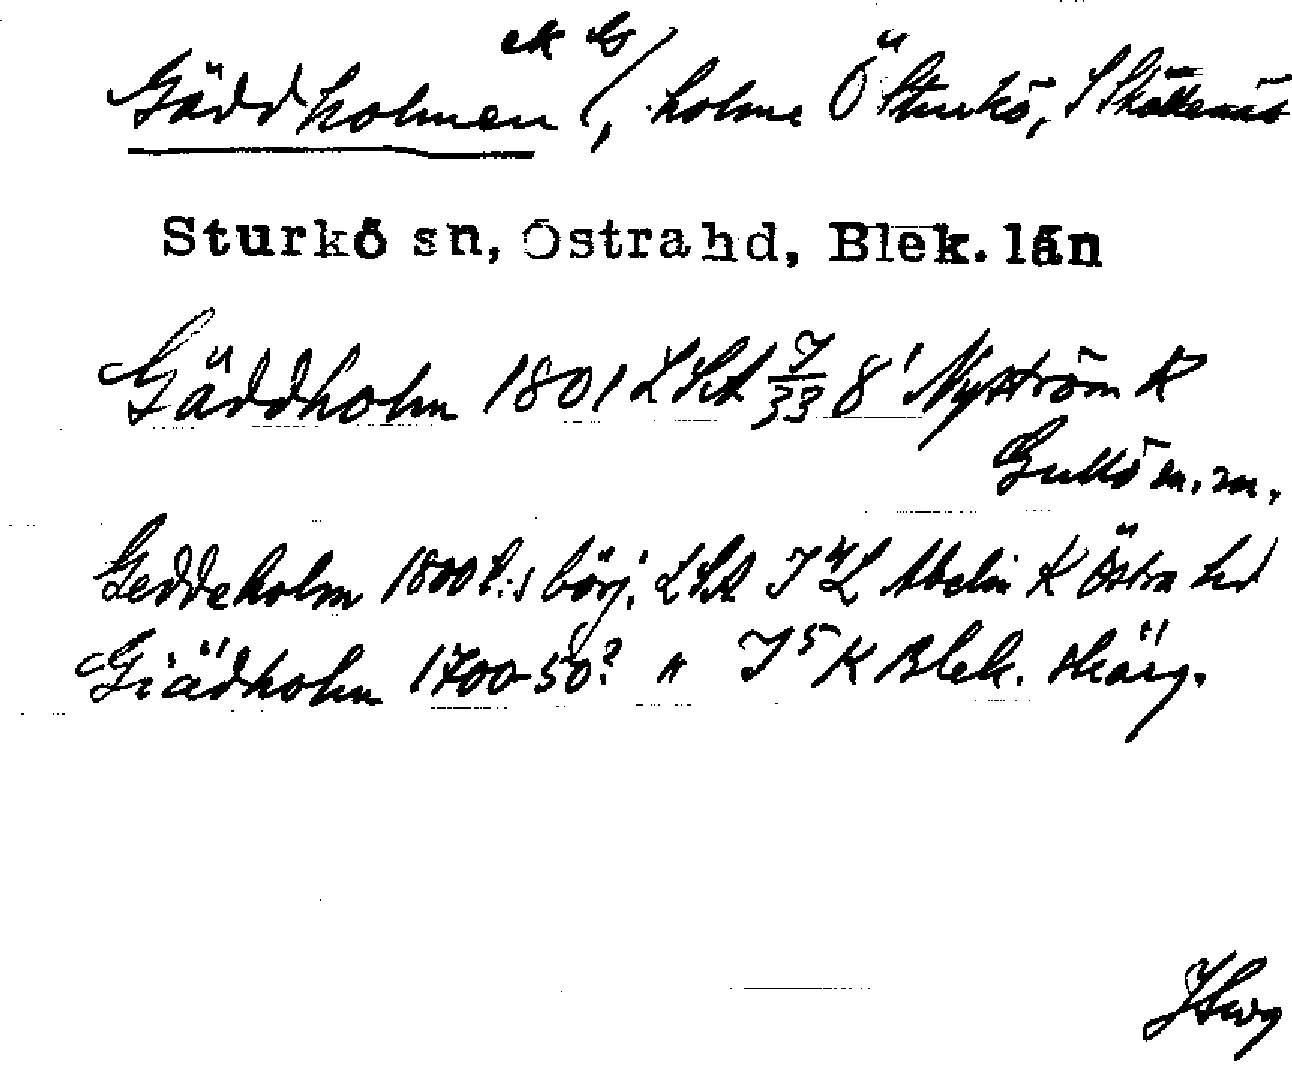 ek G
Gäddholmen, holme Ö Sturkö, S Skällenäs
Sturkö sn, Östra hd, Blek. län
Gäddholm 1801 LSA J/33 8' Nyström K
Gullö m.m.
Geddeholm 1800 t:s börj. LSA J 4 L Abelin K Östra hd
Giädholm 1700-50? " J 5 K Blek. skärg.